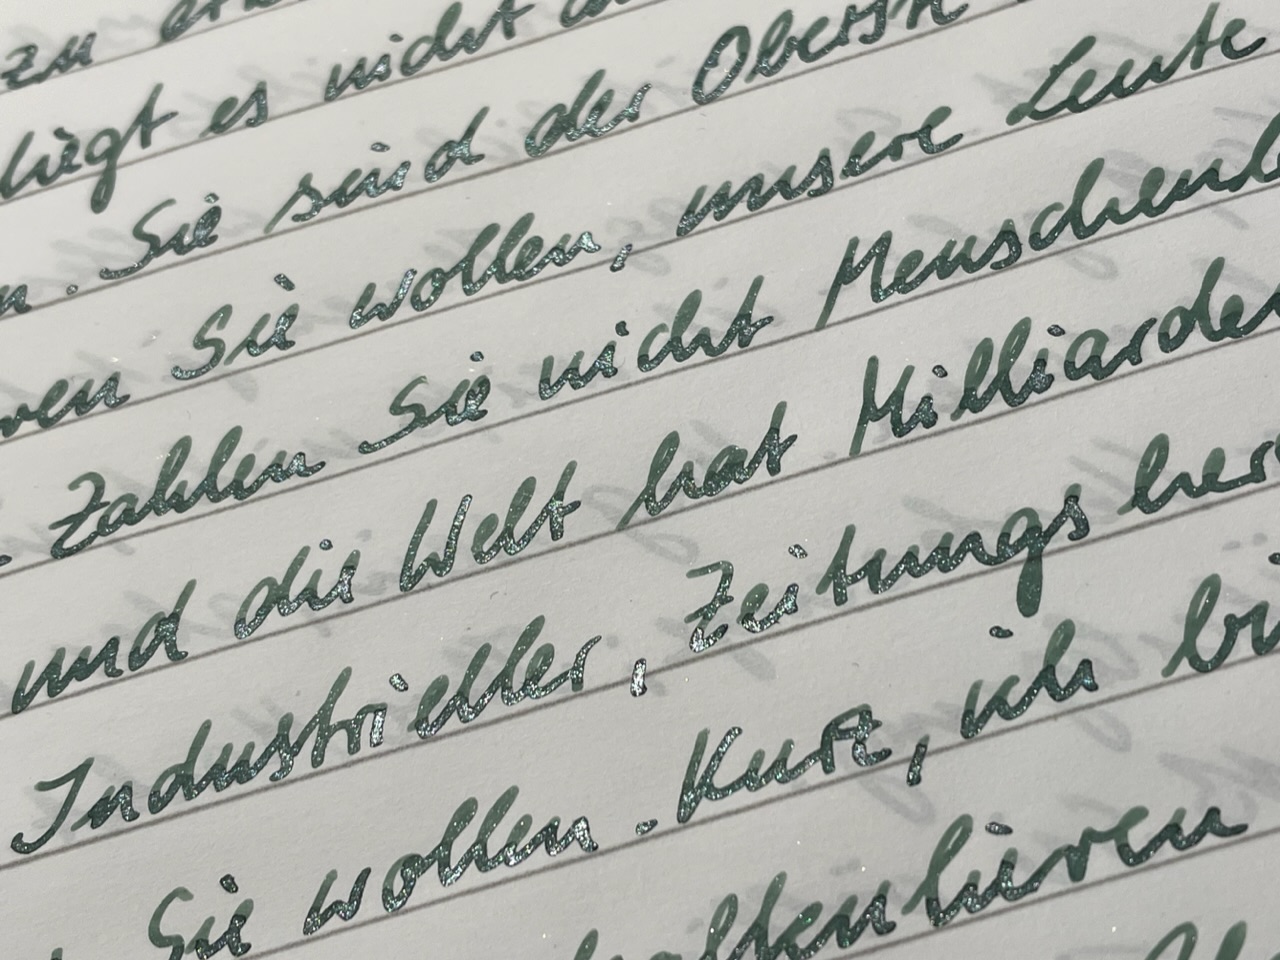 zu
liegt es nicht
n. Sie sind der Oberst
ren Sie wollen, unsere Leute
. Zahlen Sie nicht Menschenle
und die Welt hat Milliarden
Industrieller, Zeitungsher
Sie wollen. Kurz, ich bi